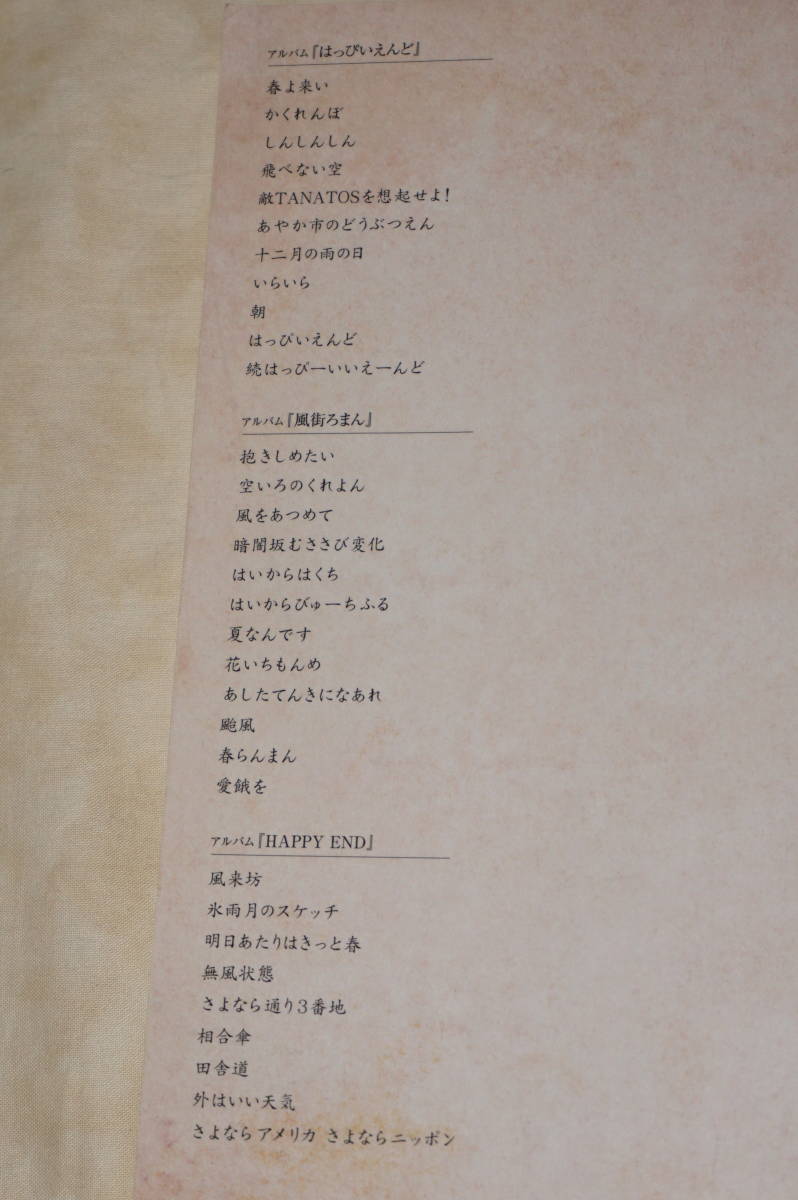 アルバム『はっぴいえんど』
春よ来い
かくれんぼ
しんしんしん
飛べない空
敵TANATOSを想起せよ!
あやか市のどうぶつえん
十二月の雨の日
いらいら
朝
はっぴいえんど
続はっぴーいいえーんど
アルバム『風街ろまん』
抱きしめたい
空いろのくれよん
風をあつめて
暗闇坂むささび変化
はいからはくち
はいからびゅーちふる
夏なんです
花いちもんめ
あしたてんきになあれ
颱風
春らんまん
愛餓を
アルバム『HAPPY END』
風来坊
氷雨月のスケッチ
明日あたりはきっと春
無風状態
さよなら通り3番地
相合傘
田舎道
外はいい天気
さよならアメリカ さよならニッポン